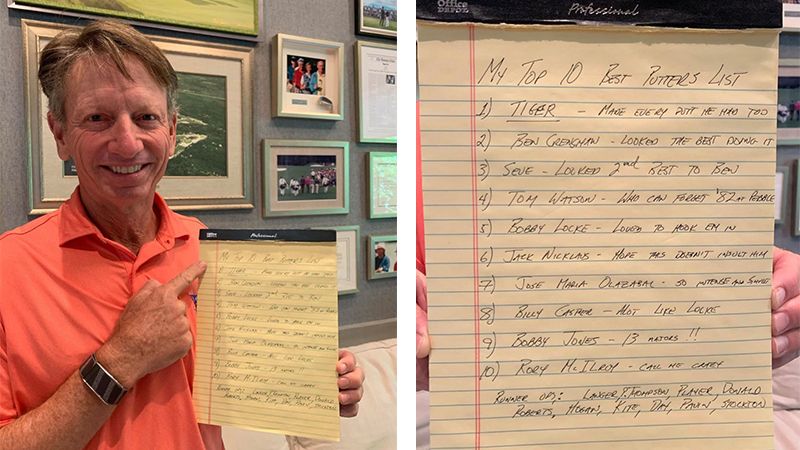 Professional
My Top 10 Best Putters List
Office DEPOT Professional
My Top 10 Best Putters List
1) TIGER - MADE EVERY PUTT HE HAD TOO
2) BEN CRENSHAW - LOOKED THE BEST DOING IT
3) SEVE - LOOKED 2nd BEST TO BEN
4) TOM WATSON - WHO CAN FORGET '82 AT PEBBLE
5) BOBBY LOCKE - LOVED TO HOOK EM IN
6) JACK NICKLAUS - HOPE THIS DOESN'T INSULT HIM
7) JOSE MARIA OLAZABAL - SO INTENSE AND SIMPLE
8) BILLY CASPER - ALOT LIKE LOCKE
9) BOBBY JONES - 13 MAJORS !!
10) RORY MCILROY - CALL ME CRAZY
RUNNER UPS: LANGER, THOMPSON, PLAYER, DONALD
ROBERTS, HOGAN, KITE, DAY, PAVIN, STOCKTON